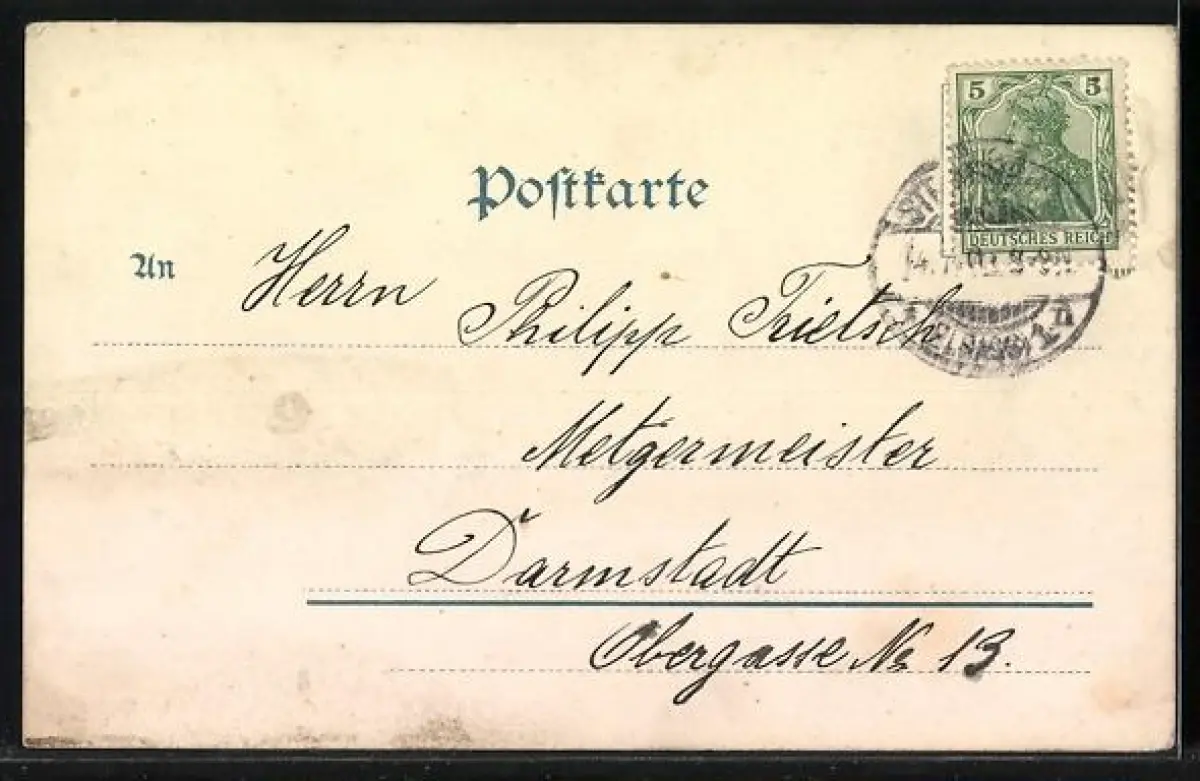 5 5
DEUTSCHES REICH
Postkarte
An
Herrn
Philipp Trietsch
Metzgermeister
Darmstadt
Obergasse No 13.